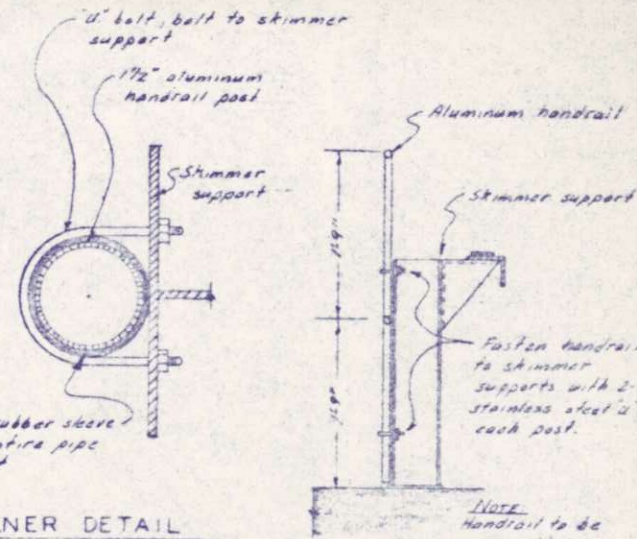 "U" bolt, bolt to skimmer
support
1 1/2" aluminum
handrail post
Skimmer
support
rubber sleeve
entire pipe
NER DETAIL
Aluminum handrail
Skimmer support
Fasten handrail
to skimmer
supports with 2-
stainless steel "u"
each post.
NOTE
Handrail to be